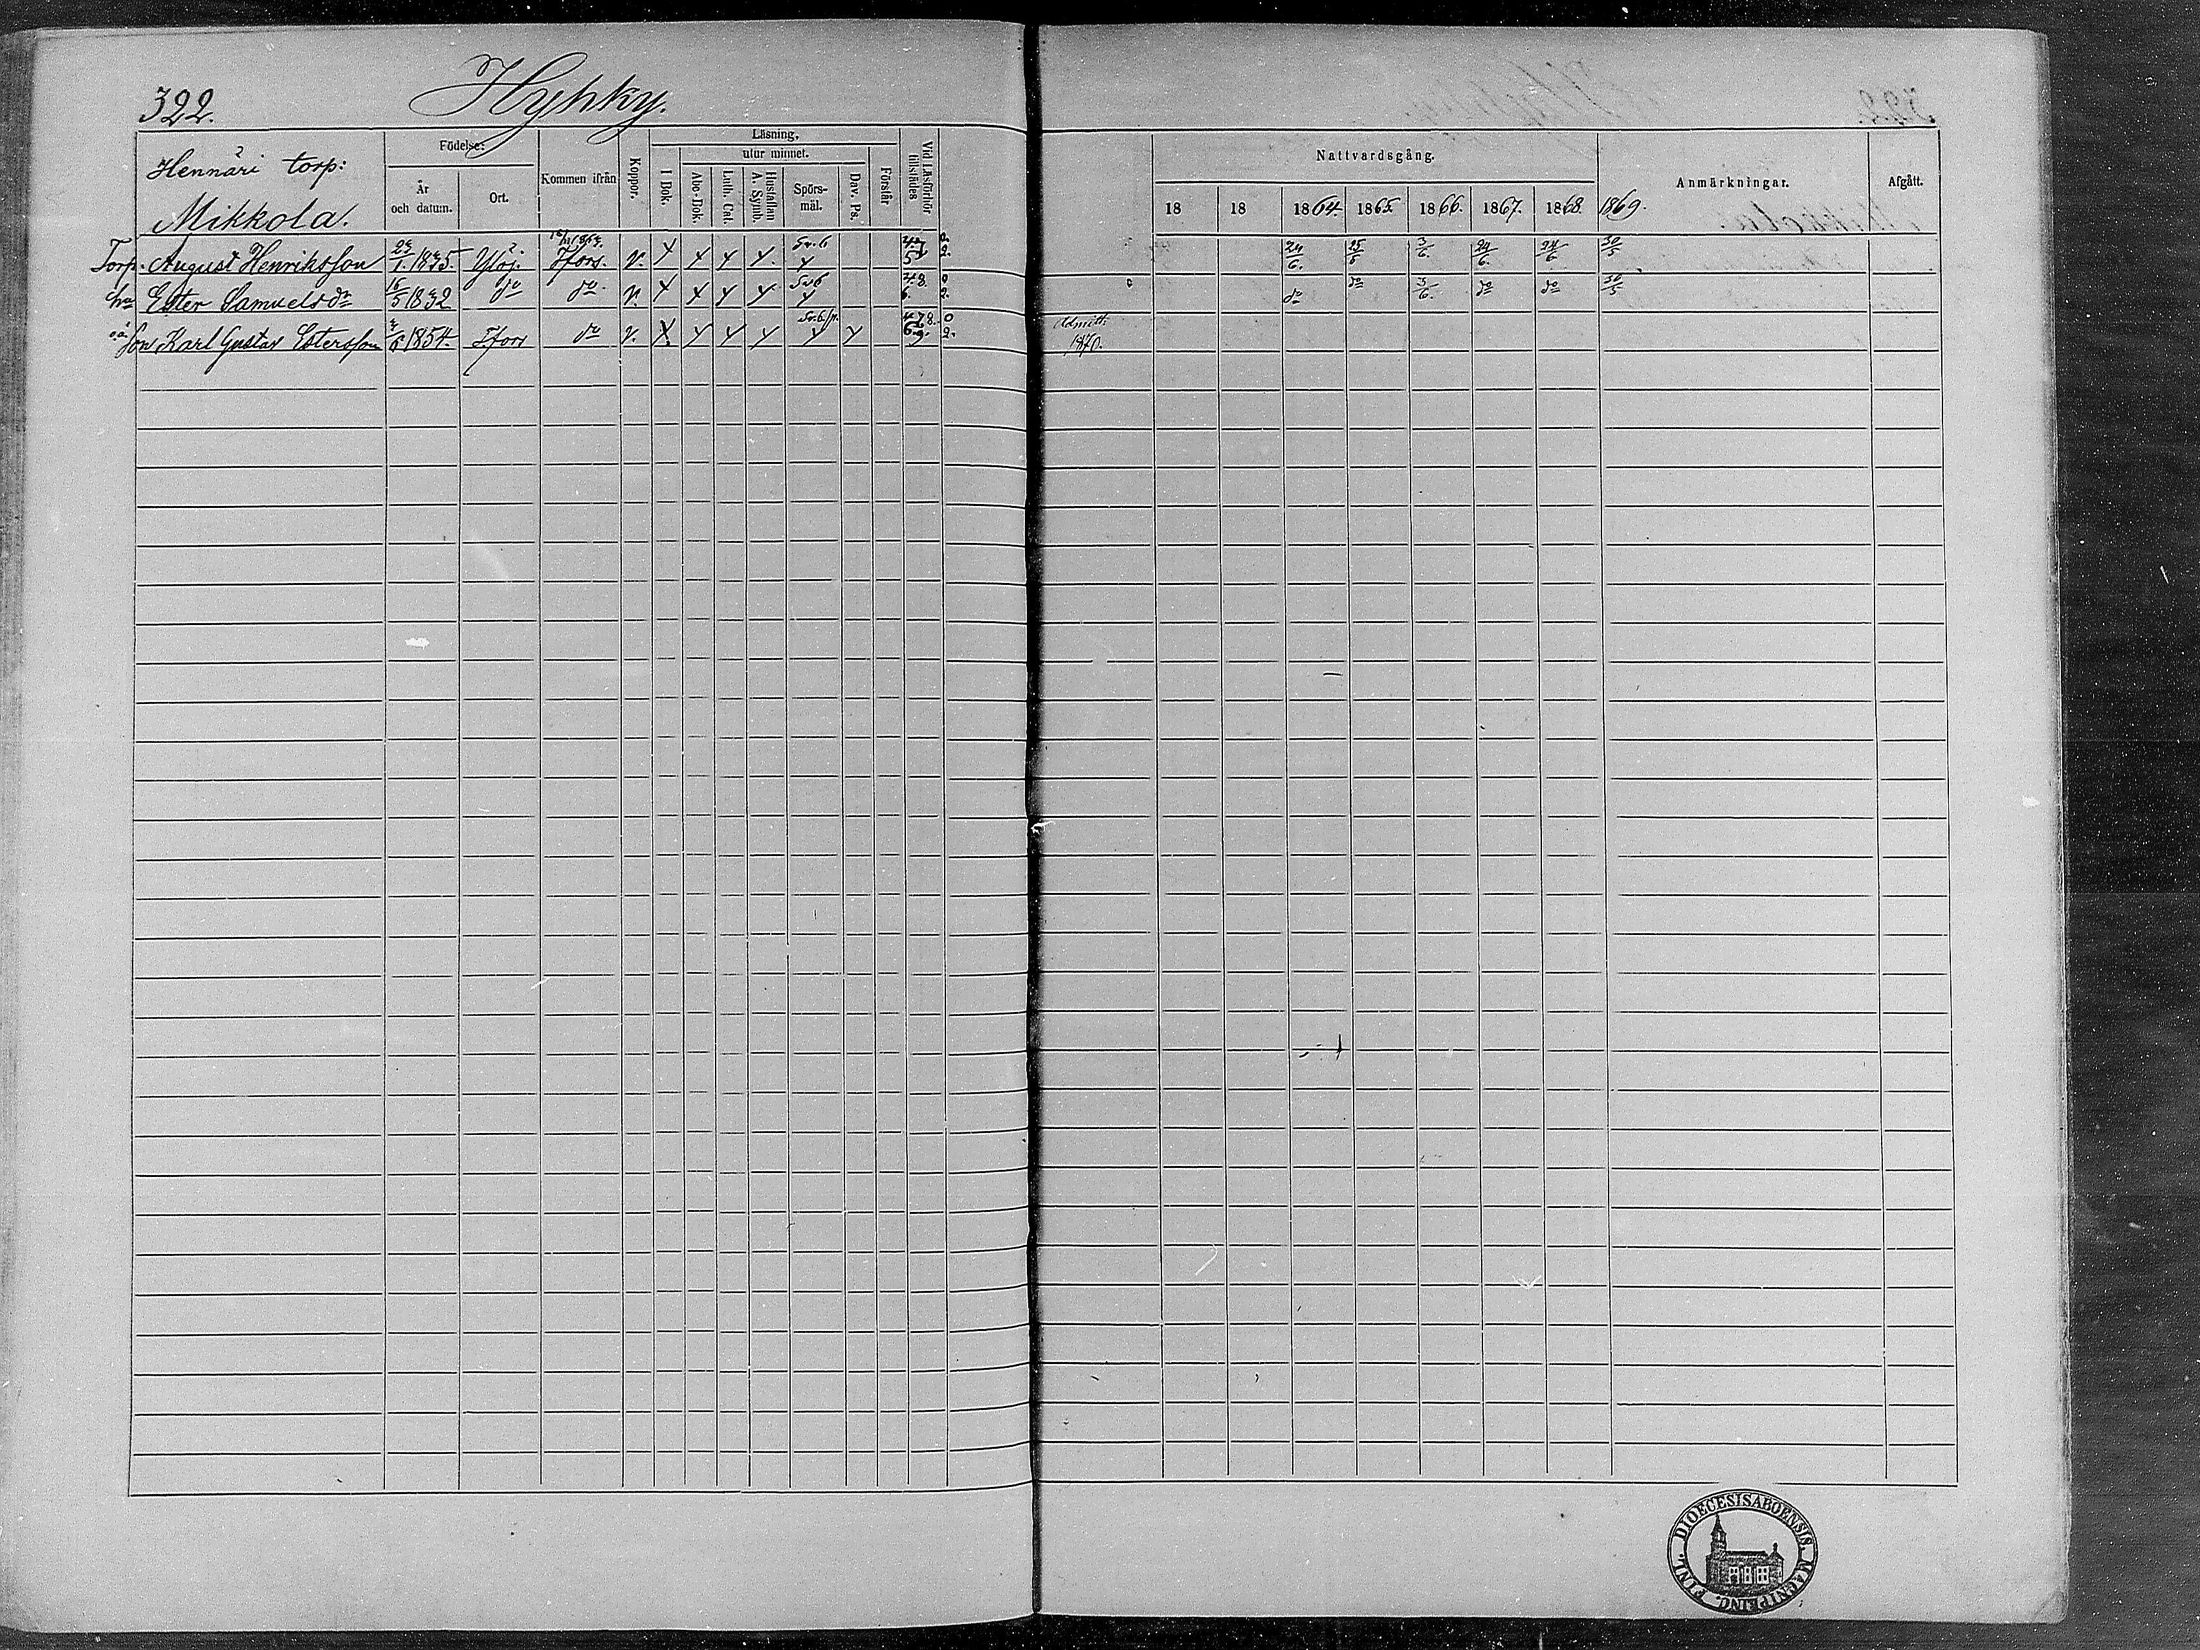 322.
Hyhky.
Hennäri torp:
Mikkola.
Födelse:
År och datum.
Ort.
Kommen ifrån
Koppor.
Läsning,
I Bok.
utur minnet.
Abc-Dok.
Luth. Cat.
Hustaflan A. Symb.
Spörs-mål.
Dav. Ps.
Förstår
Vid Läsförhör tillstädes
Nattvardsgång.
18 18 1864. 1865. 1866. 1867. 1868. 1869.
Anmärkningar.
Afgått.
Torp. August Henriksson 23/1 1835. Ylöj. Tfors. v. Sv. 6 24/6. 25/6 3/6. 24/6. 24/6 30/5
hu Ester Samuelsdr 16/5 1832 do do v. Sv 6 4. 8. do do 3/6. do do 30/5
Son Karl Gustaf Estersson 1854. Tfors do v. Admitt. 1870.
DIOECESIS ABOENSIS. MAGNI PRINC. FINL.